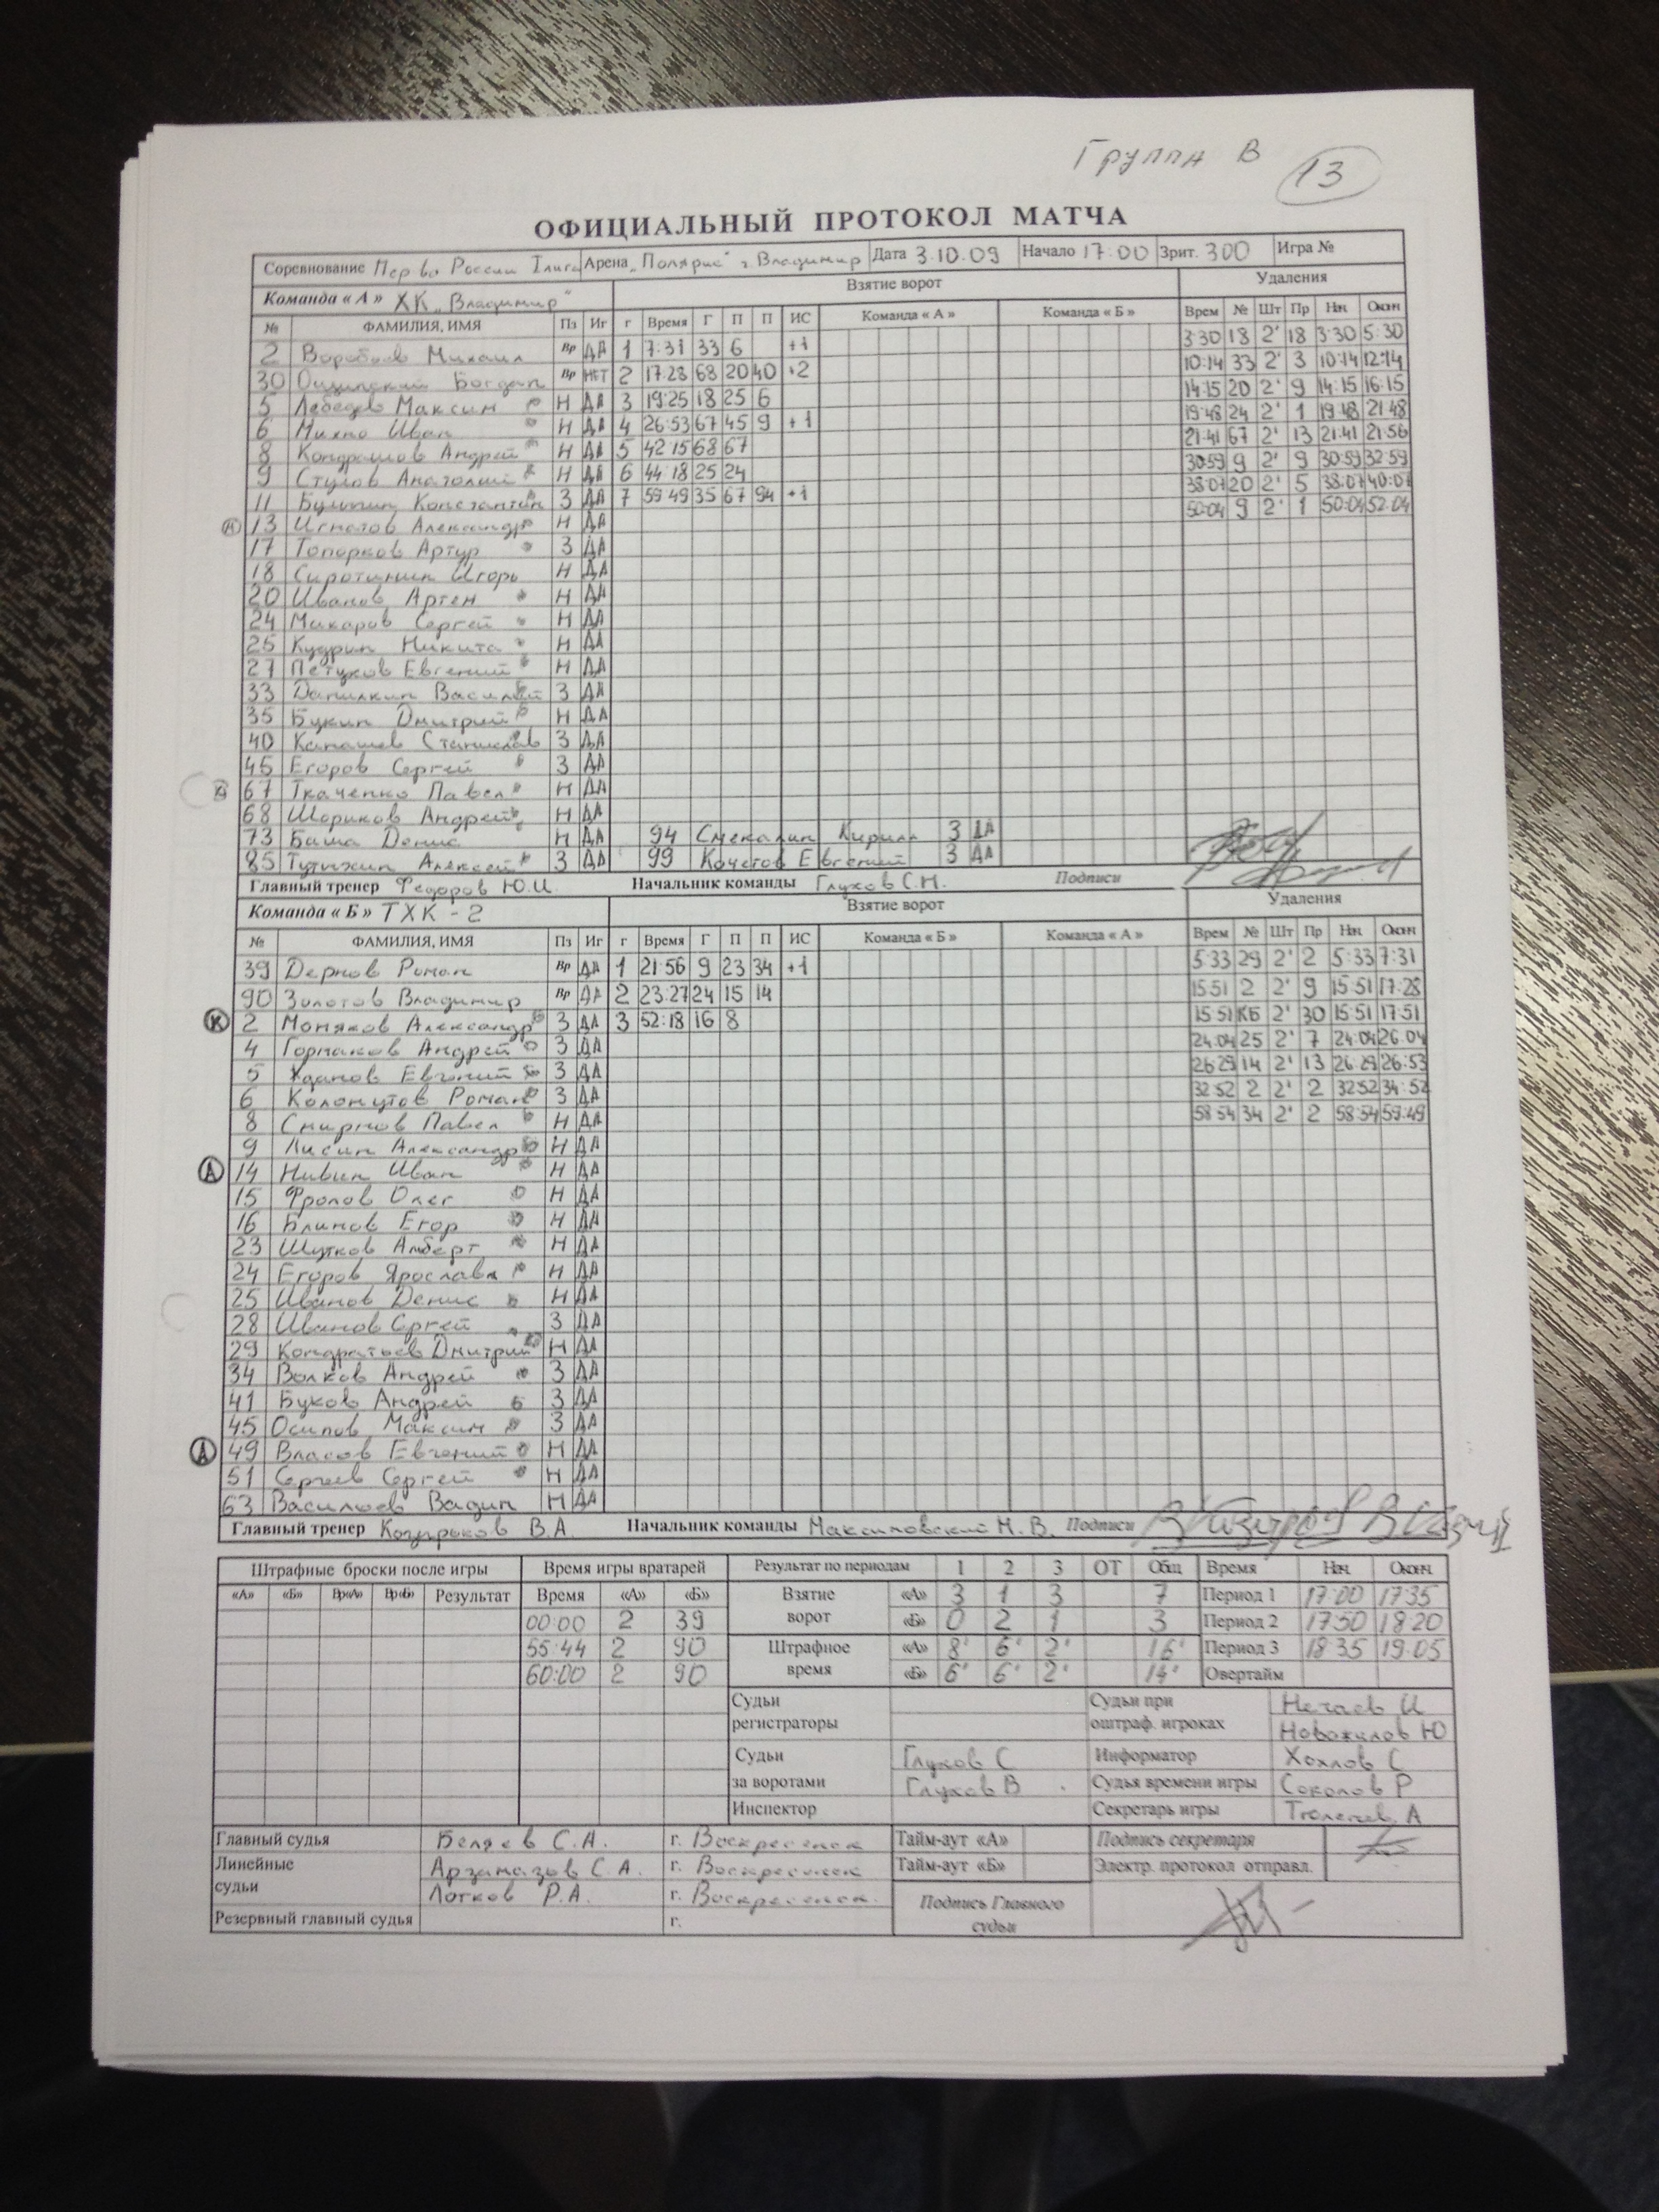 Группа В 13
ОФИЦИАЛЬНЫЙ ПРОТОКОЛ МАТЧА
Соревнование Пер во России I лига Арена „Полярис" г. Владимир Дата 3.10.09 Начало 17:00 Зрит. 300 Игра №
Команда « А » ХК „Владимир" Взятие ворот Удаления
№ ФАМИЛИЯ, ИМЯ Пз Иг г Время Г П П ИС Команда « А » Команда « Б » Врем № Шт Пр Нач Окон
2 Воробьев Михаил Вр ДА 1 7:31 33 6 +1 3:30 18 2' 18 3:30 5:30
30 Богдан Вр НЕТ 2 17:28 68 20 40 +2 10:14 33 2' 3 10:14 12:14
5 Лебедев Максим Н ДА 3 19:25 18 25 6 14:15 20 2' 9 14:15 16:15
6 Михно Иван Н ДА 4 26:53 67 45 9 +1 19:48 24 2' 1 19:48 21:48
8 Кондрашов Андрей Н ДА 5 42 15 68 67 21:41 67 2' 13 21:41 21:56
9 Стулов Анатолий Н ДА 6 44:18 25 24 30:59 9 2' 9 30:59 32:59
11 Константин З ДА 7 59:49 35 67 94 +1 38:07 20 2' 5 38:07 40:07
13 Игнатов Александр Н ДА 50:04 9 2' 1 50:04 52:04
17 Топорков Артур З ДА
18 Сиротинин Игорь Н ДА
20 Иванов Артем Н ДА
24 Макаров Сергей Н ДА
25 Кудрин Никита Н ДА
27 Петухов Евгений Н ДА
33 Данилкин Василий З ДА
35 Букин Дмитрий Н ДА
40 Капашев Станислав З ДА
45 Егоров Сергей З ДА
67 Ткаченко Павел Н ДА
68 Шориков Андрей Н ДА
73 Баша Денис Н ДА 94 Смекалин Кирилл З ДА
85 Алексей З ДА 99 Кочетов Евгений З ДА
Главный тренер Федоров Ю.И. Начальник команды Глухов С.Н. Подписи
Команда « Б » ТХК - 2 Взятие ворот Удаления
№ ФАМИЛИЯ, ИМЯ Пз Иг г Время Г П П ИС Команда « Б » Команда « А » Врем № Шт Пр Нач Окон
39 Дернов Роман Вр ДА 1 21:56 9 23 34 +1 5:33 29 2' 2 5:33 7:31
90 Золотов Владимир Вр ДА 2 23:27 24 15 14 15:51 2 2' 9 15:51 17:28
К 2 Моняков Александр З ДА 3 52:18 16 8 15:51 КБ 2' 30 15:51 17:51
4 Горшков Андрей З ДА 24:04 25 2' 7 24:04 26:04
5 Жданов Евгений З ДА 26:29 14 2' 13 26:29 26:53
6 Коломутов Роман З ДА 32:52 2 2' 2 32:52 34:52
8 Смирнов Павел Н ДА 58:54 34 2' 2 58:54 59:49
9 Лисин Александр Н ДА
А 14 Нивин Иван Н ДА
15 Фролов Олег Н ДА
16 Блинов Егор Н ДА
23 Шутков Альберт Н ДА
24 Егоров Ярослав Н ДА
25 Иванов Денис Н ДА
28 Иванов Сргей З ДА
29 Кондратьев Дмитрий Н ДА
34 Волков Андрей З ДА
41 Буков Андрей З ДА
45 Осипов Максим З ДА
А 49 Власов Евгений Н ДА
51 Сергеев Сергей Н ДА
63 Васильев Вадим Н ДА
Главный тренер Козырьков В.А. Начальник команды Максимовский М.В. Подписи
Штрафные броски после игры Время игры вратарей Результат по периодам 1 2 3 ОТ Общ Время Нач Оконч
«А» «Б» Вр«А» Вр«Б» Результат Время «А» «Б» Взятие ворот «А» 3 1 3 7 Период 1 17:00 17:35
00:00 2 39 «Б» 0 2 1 3 Период 2 17:50 18:20
55:44 2 90 Штрафное время «А» 8' 6' 2' 16' Период 3 18:35 19:05
60:00 2 90 «Б» 6' 6' 2' 14' Овертайм
Судьи регистраторы Судьи при оштраф. игроках Нечаев И
Новожилов Ю
Судьи за воротами Глухов С Информатор Хохлов С
Глухов В Судья времени игры Соколов Р
Инспектор Секретарь игры А
Главный судья Беляев С.А. г. Воскресенск Тайм-аут «А» Подпись секретаря
Линейные судьи Арзамазов С.А. г. Воскресенск Тайм-аут «Б» Электр. протокол отправл.
Лотков Р.А. г. Воскресенск. Подпись Главного судьи
Резервный главный судья г.